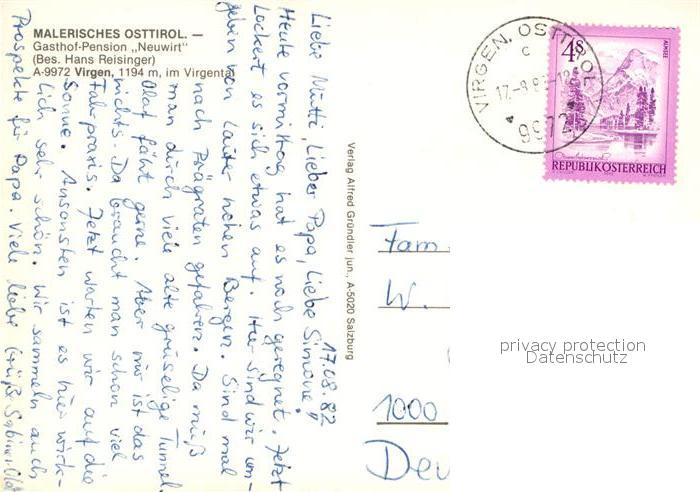 MALERISCHES OSTTIROL. —
Gasthof-Pension „Neuwirt"
(Bes. Hans Reisinger)
A-9972 Virgen, 1194 m, im Virgental
17.08.82
Liebe Mutti, Lieber Papa, Liebe Simone!
Heute vormittag hat es noch geregnet. Jetzt
lockert es sich etwas auf. Hier sind wir um-
geben von lauter hohen Bergen. Sind mal
nach Prägraten gefahren. Da muß
man durch viele alte gruselige Tunnel.
Olaf fährt gerne. Aber mir ist das
nichts. Da braucht man schon viel
Fahrpraxis. Jetzt warten wir auf die
Sonne. Ansonsten ist es hier wirk-
lich sehr schön. Wir sammeln auch
Prospekte für Papa. Viele liebe Grüße Sabine
Verlag Alfred Gründler jun., A-5020 Salzburg
VIRGEN, OSTTIROL
c
17.-8.8
9972
4 S
ALMSEE
REPUBLIK ÖSTERREICH
Fam.
W.
1000
Deu
privacy protection
Datenschutz